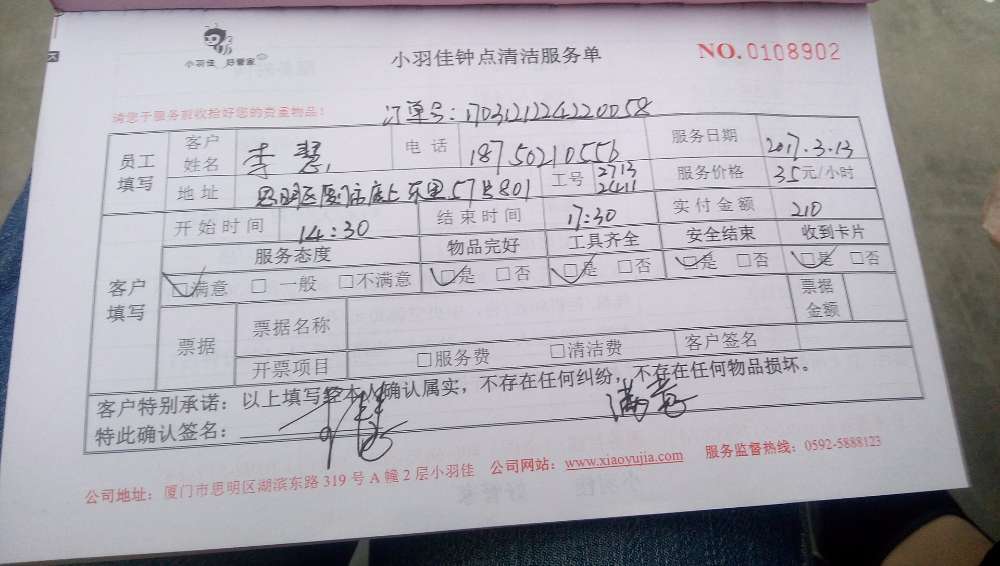 小羽佳 好管家
小羽佳钟点清洁服务单
NO.0108902
请您于服务前收拾好您的贵重物品!
订单号:1703121224220058
员工填写
客户姓名 李慧 电话 18750210556 服务日期 2017.3.13
地址 思明区厦门市底上东里57号801 工号 2713 2411 服务价格 35元/小时
客户填写
开始时间 14:30 结束时间 17:30 实付金额 210
服务态度 物品完好 工具齐全 安全结束 收到卡片
□满意 □一般 □不满意 □是 □否 □是 □否 □是 □否 □是 □否
票据 票据名称 票据金额
开票项目 □服务费 □清洁费 客户签名
客户特别承诺:以上填写经本人确认属实,不存在任何纠纷,不存在任何物品损坏。
特此确认签名: 满意
公司地址:厦门市思明区湖滨东路319号A幢2层小羽佳 公司网站:www.xiaoyujia.com 服务监督热线:0592-5888123